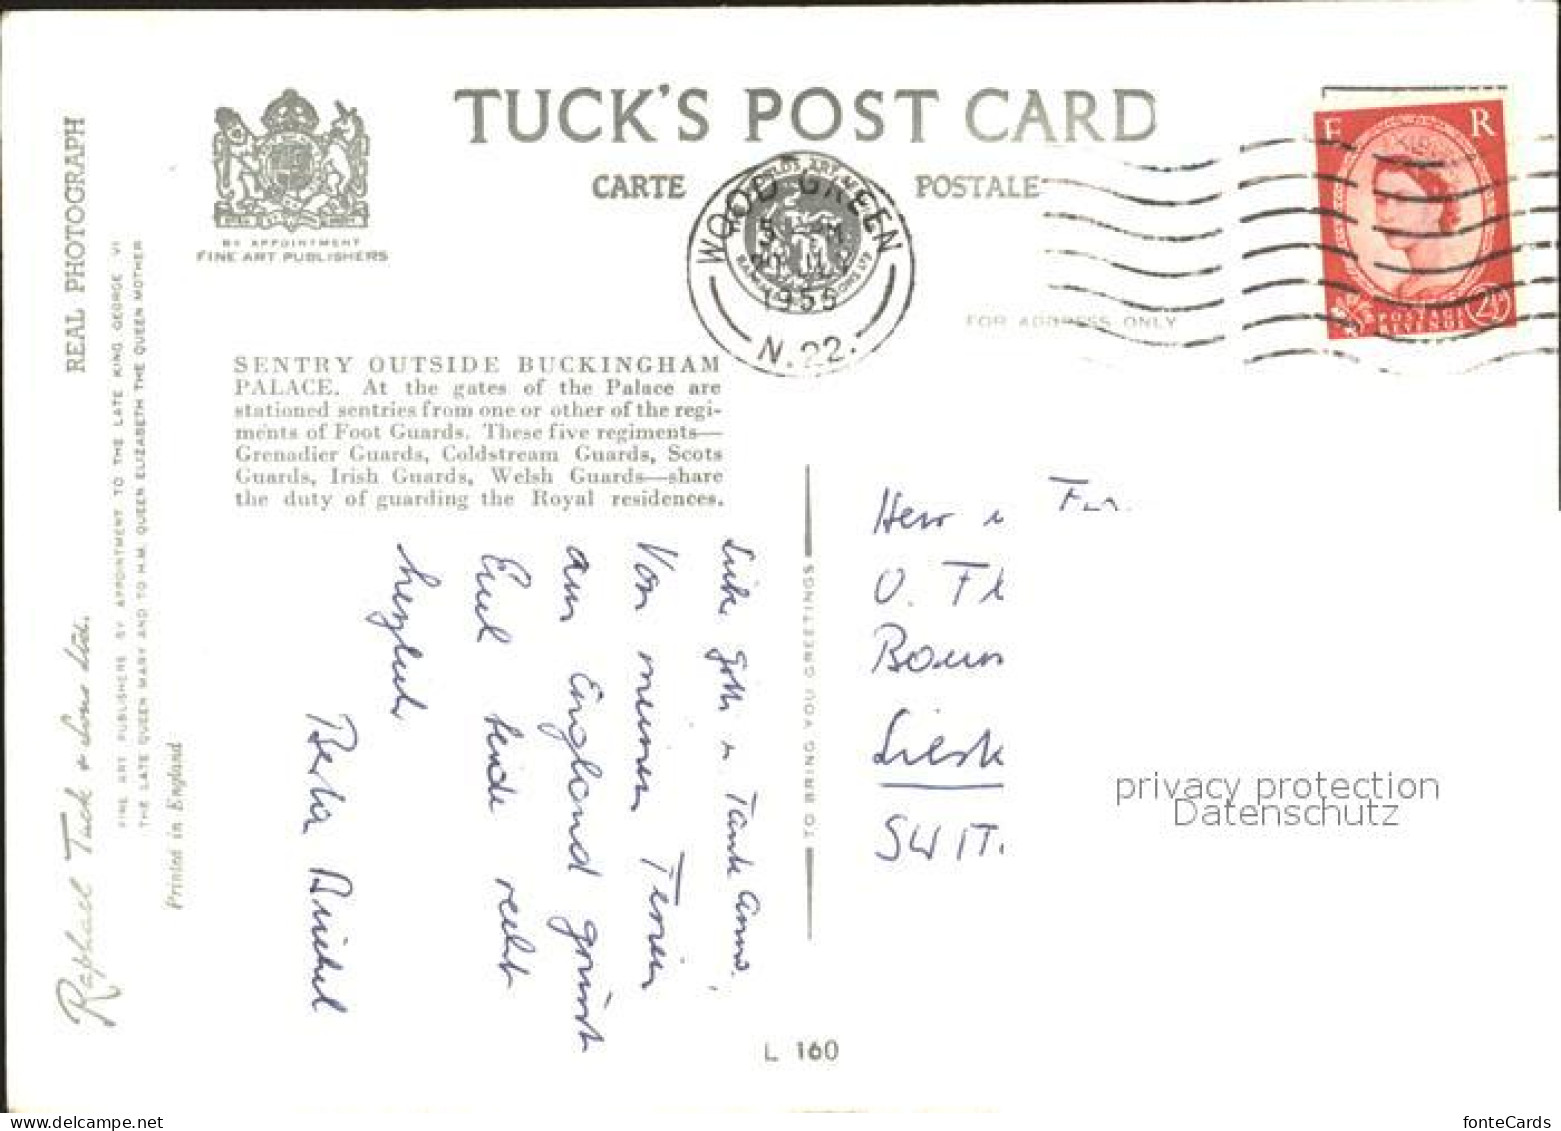 TUCK'S POST CARD
CARTE POSTALE
BY APPOINTMENT
FINE ART PUBLISHERS
REAL PHOTOGRAPH
FINE ART PUBLISHERS BY APPOINTMENT TO THE LATE KING GEORGE VI
THE LATE QUEEN MARY AND TO H.M. QUEEN ELIZABETH THE QUEEN MOTHER
Raphael Tuck & Sons Ltd.
Printed in England
WOOD GREEN
1955
N.22.
E R
POSTAGE
REVENUE
2½
FOR ADDRESS ONLY
SENTRY OUTSIDE BUCKINGHAM
PALACE. At the gates of the Palace are
stationed sentries from one or other of the regi-
ments of Foot Guards. These five regiments—
Grenadier Guards, Coldstream Guards, Scots
Guards, Irish Guards, Welsh Guards—share
the duty of guarding the Royal residences.
TO BRING YOU GREETINGS
Tante Anna,
Von meinen Ferien
aus England grüsst
Euch beide recht
herzlich
Herr
SWIT.
L 160
privacy protection
Datenschutz
fonteCards